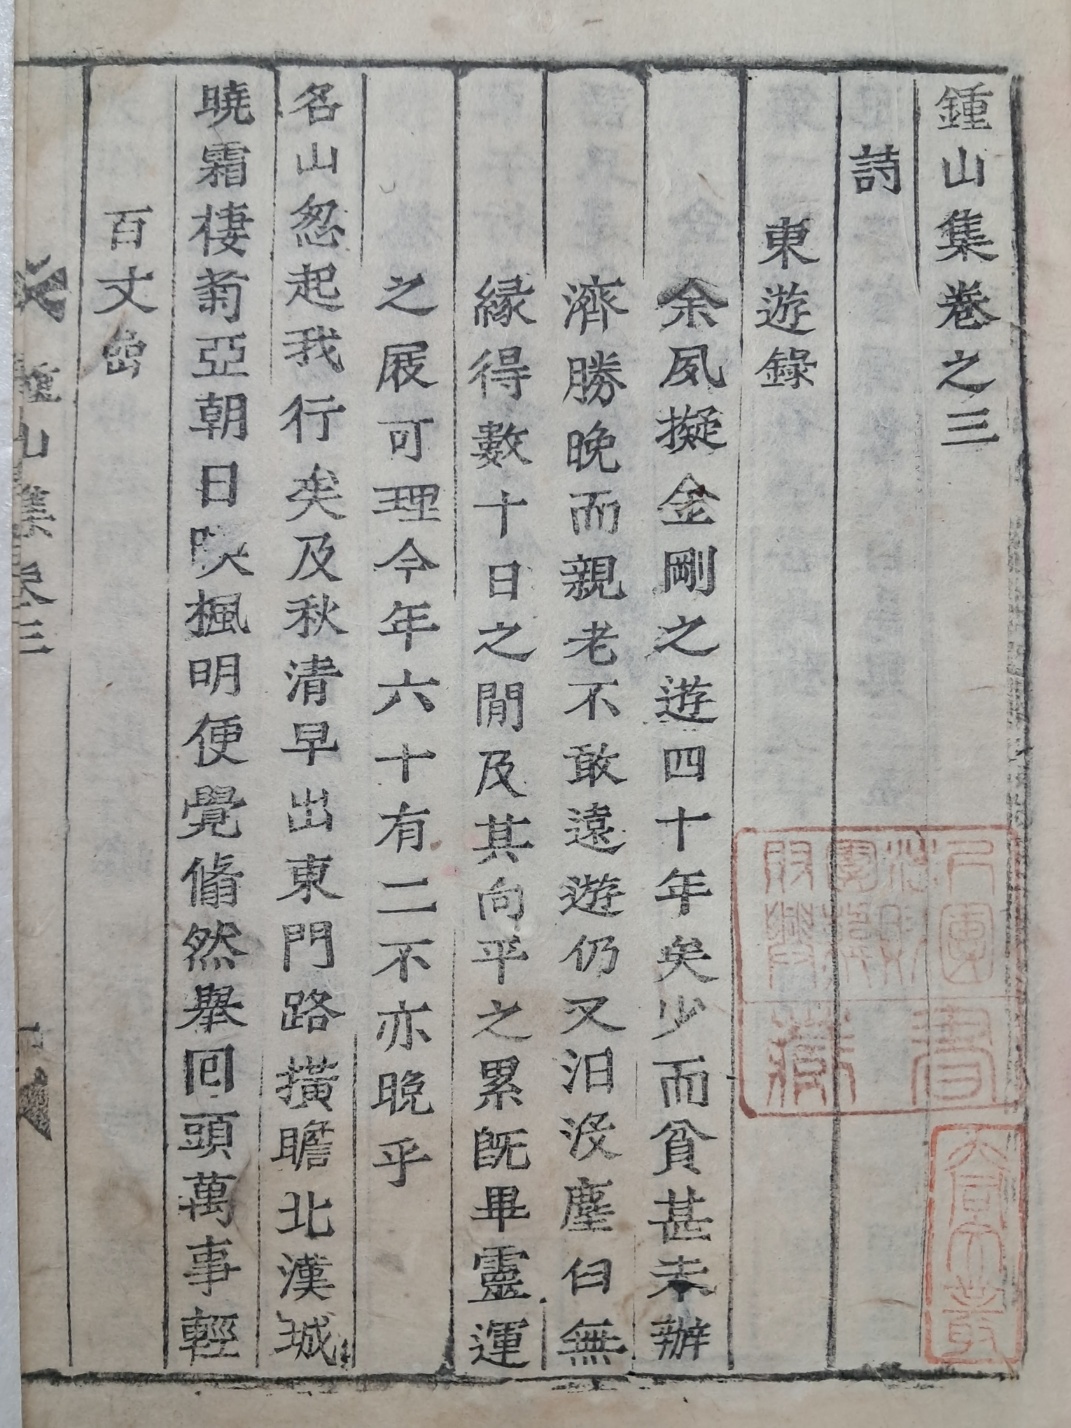 鍾山集卷之三
詩
東遊錄
余夙擬金剛之遊四十年矣少而貧甚未辦
濟勝晚而親老不敢遠遊仍又汨沒塵臼無
緣得數十日之閒及其向平之累旣畢靈運
之屐可理今年六十有二不亦晚乎
名山忽起我行矣及秋清早出東門路橫瞻北漢城
曉霜棲菊亞朝日映楓明便覺翛然舉回頭萬事輕
百丈嵒
鍾山集卷三